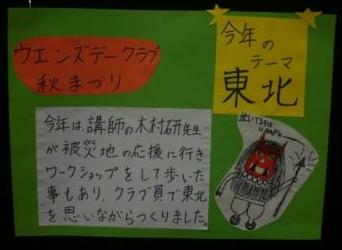 ウエンズデークラブ
秋まつり
今年の
テーマ
東北
今年は、講師の木村研先生
が被災地の応援に行き
ワークショップをして歩いた
事もあり、クラブ員で東北
を思いながらつくりました。